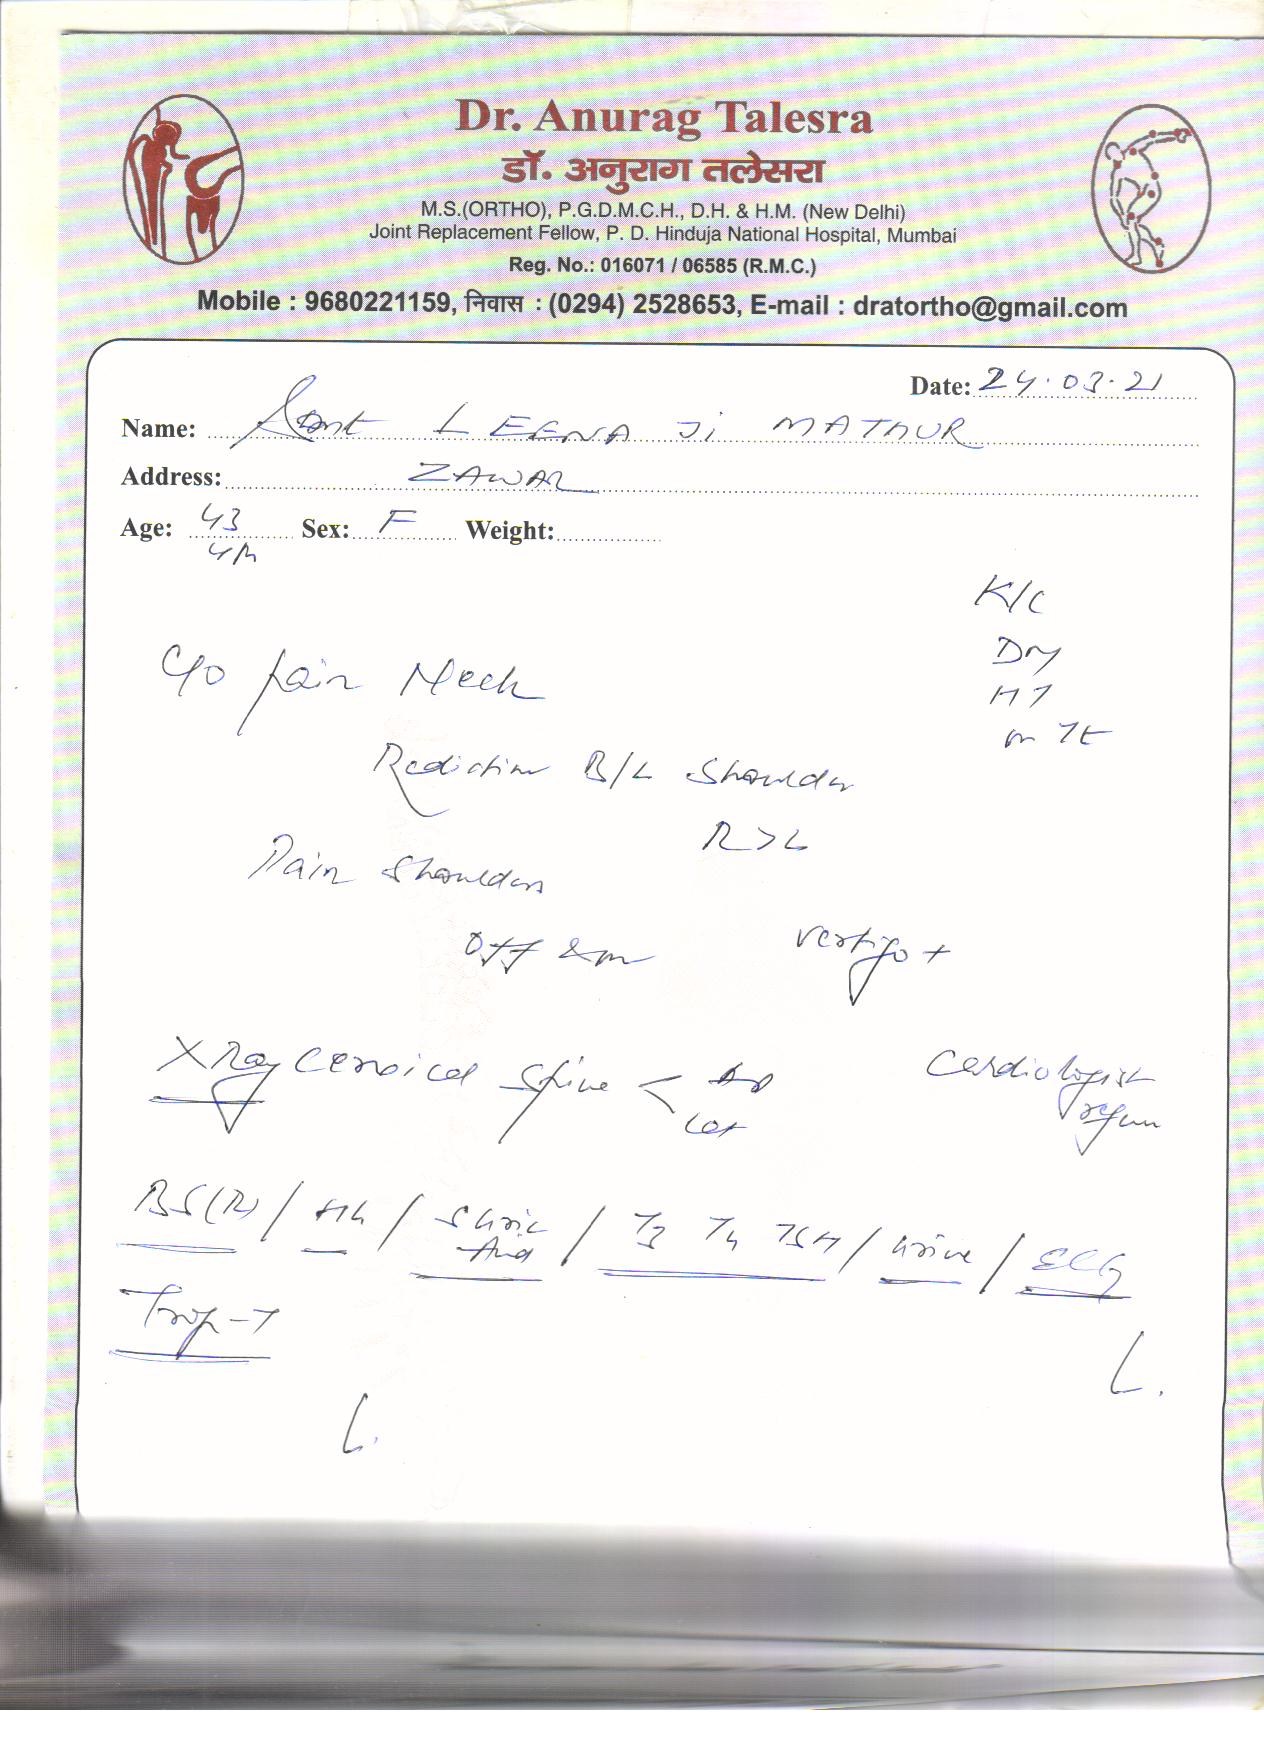 Dr. Anurag Talesra
डॉ. अनुराग तलेसरा
M.S.(ORTHO), P.G.D.M.C.H., D.H. & H.M. (New Delhi)
Joint Replacement Fellow, P. D. Hinduja National Hospital, Mumbai
Reg. No.: 016071 / 06585 (R.M.C.)
Mobile : 9680221159, निवास : (0294) 2528653, E-mail : dratortho@gmail.com
Date: 24.03.21
Name: Smt LEENA Ji MATHUR
Address: ZAWAR
Age: 43 Sex: F Weight:
K/C
DM
HT
on Tt
C/o Pain Neck
Radiation B/L Shoulder
R>L
Pain Shoulder
Vertigo +
X Ray Cervical Spine < AP
Lat
Cardiologist
BS(R) / Hb / S Uric Acid / T3 T4 TSH / Urine / ECG
Trop-T